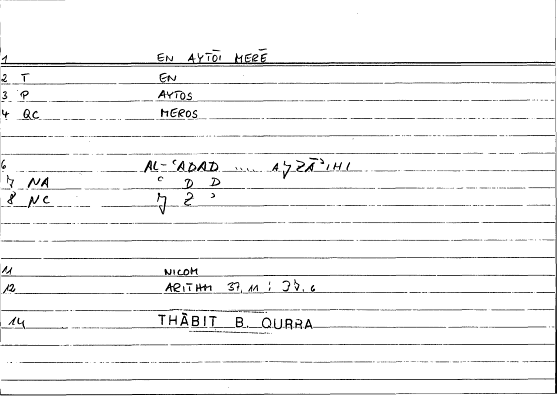 1 EN AYTŌI MERĒ
2 T EN
3 P AYTOS
4 QC MEROS
6 AL-ʿADAD .... AǦZĀʾIHI
7 NA ʿ D D
8 NC Ǧ Z ʾ
11 NICOM
12 ARITHM 37, 11 ;
14 THĀBIT B. QURRA